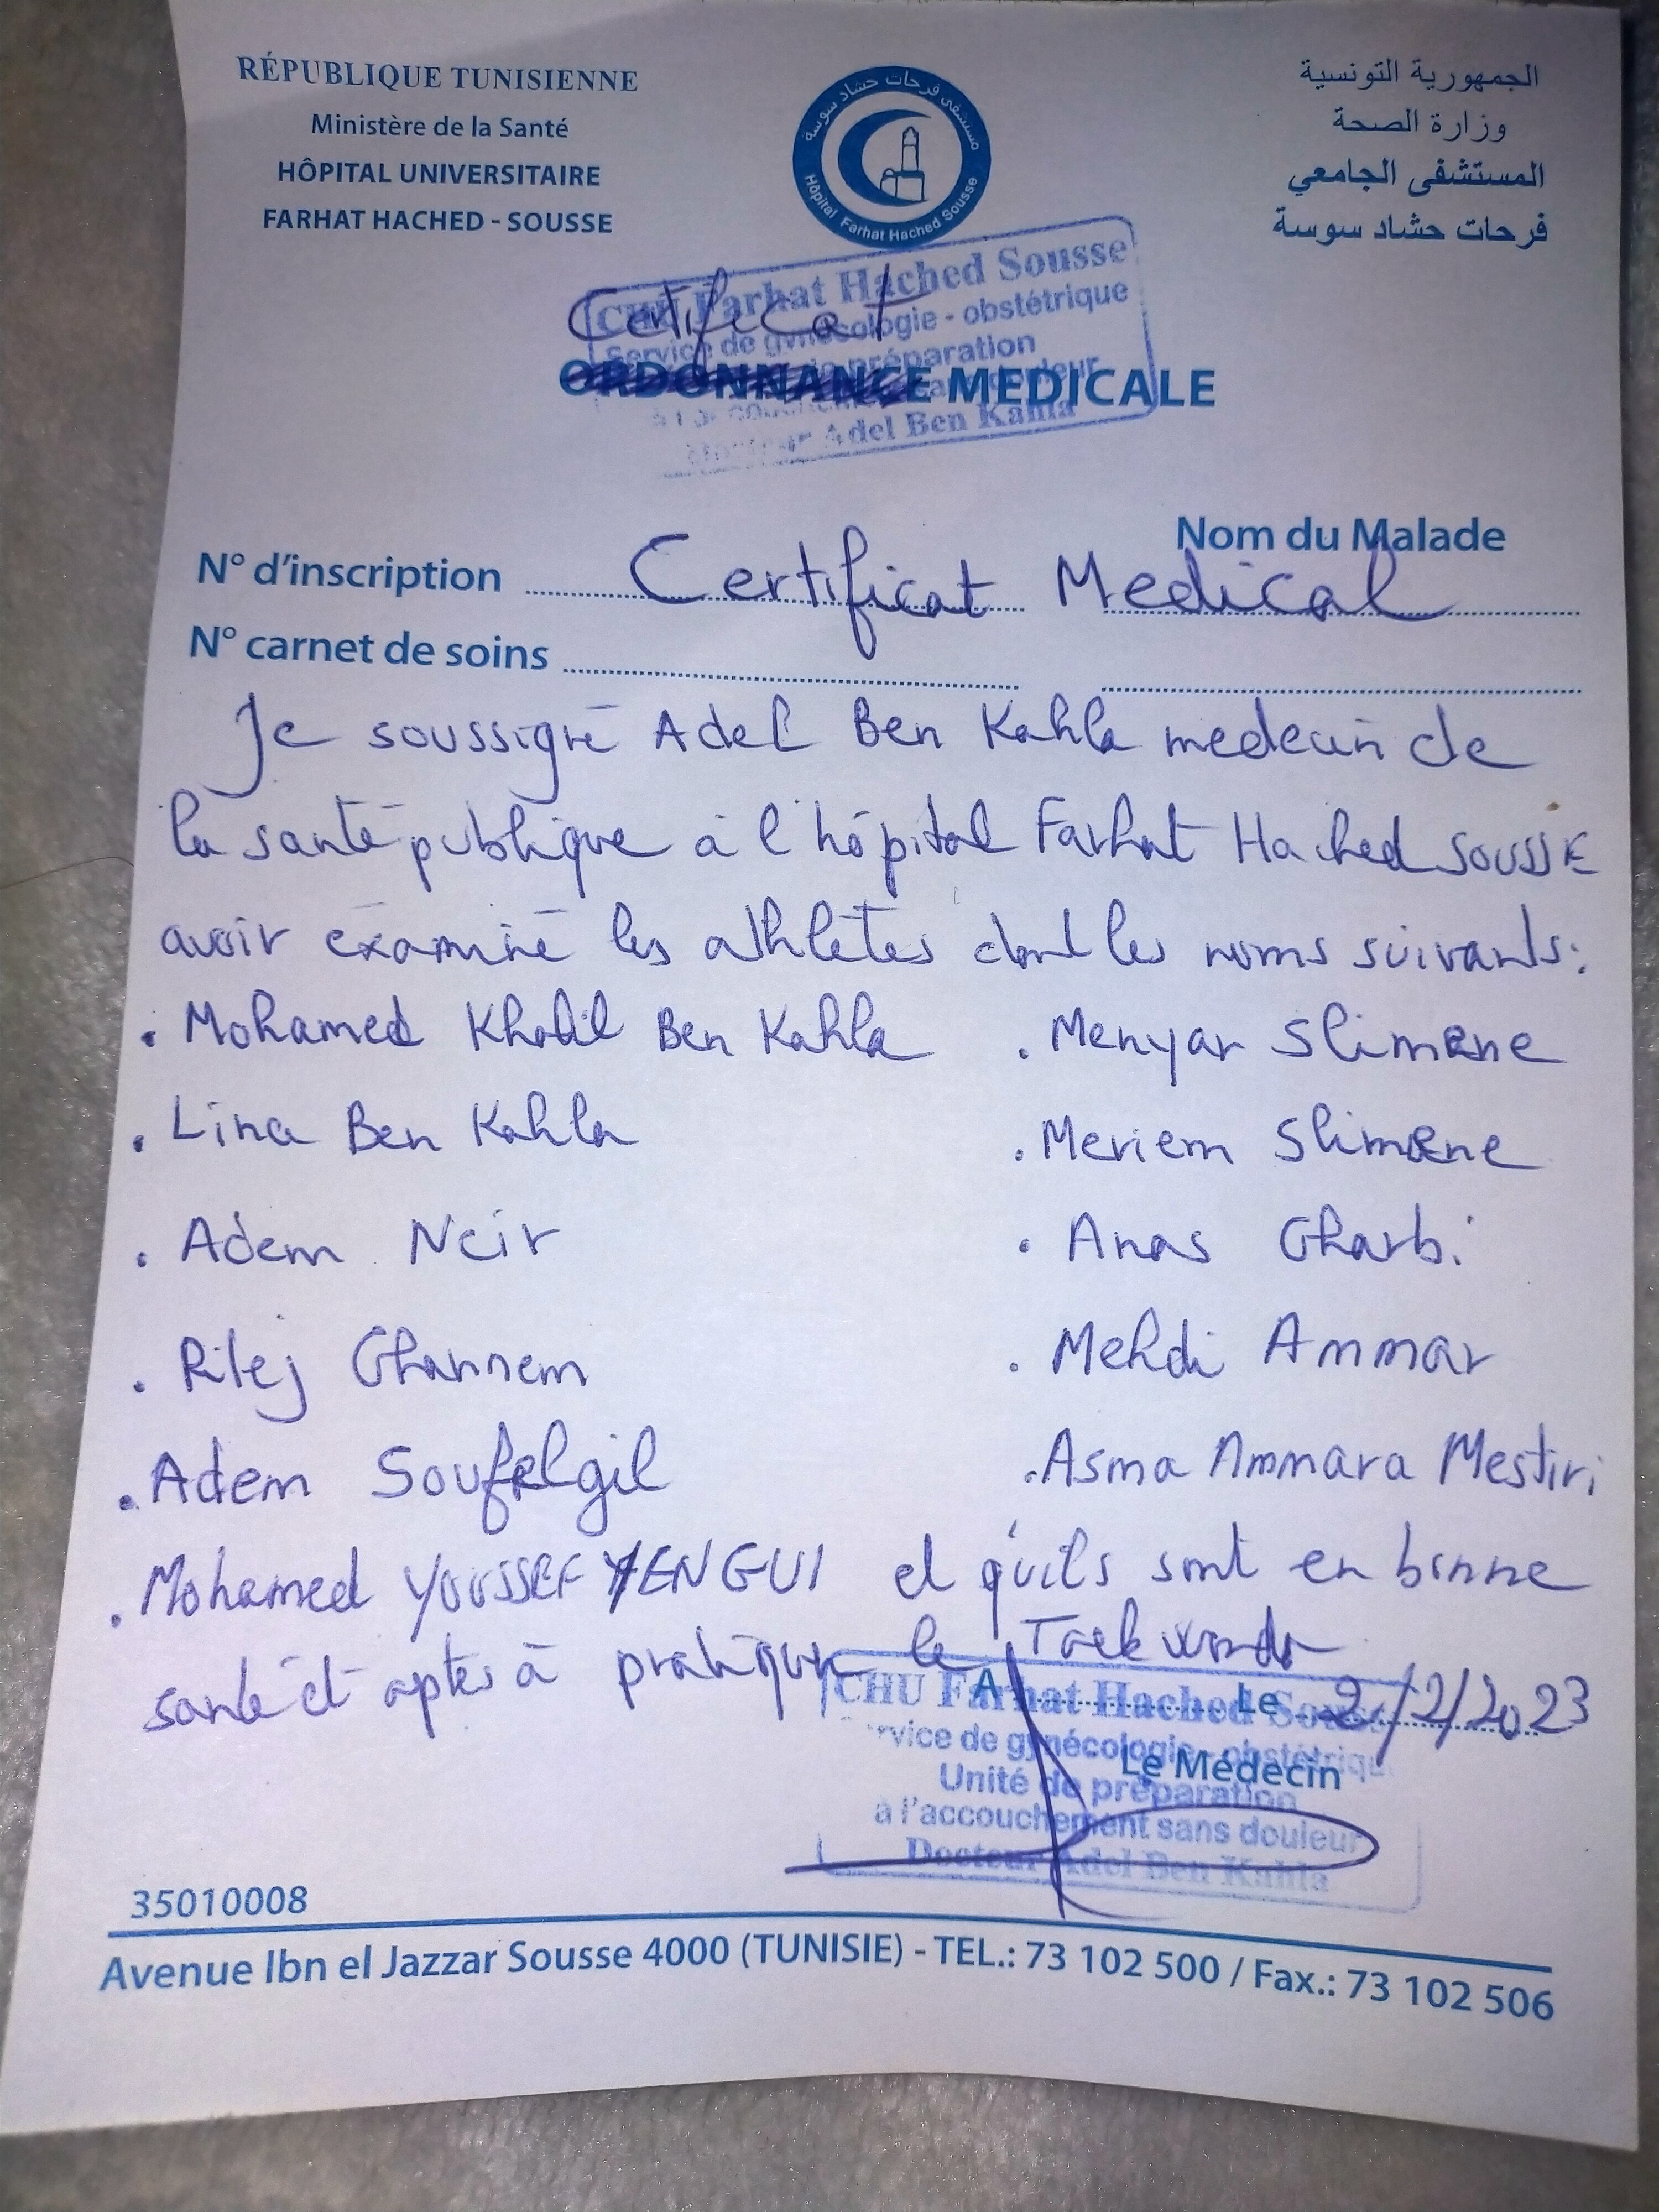 RÉPUBLIQUE TUNISIENNE
Ministère de la Santé
HÔPITAL UNIVERSITAIRE
FARHAT HACHED - SOUSSE
مستشفى فرحات حشاد سوسة
Hôpital Farhat Hached Sousse
الجمهورية التونسية
وزارة الصحة
المستشفى الجامعي
فرحات حشاد سوسة
CHU Farhat Hached Sousse
Service de gynécologie - obstétrique
préparation
Adel Ben Kahla
Certificat
ORDONNANCE MEDICALE
Nom du Malade
N° d'inscription Certificat Medical
N° carnet de soins
Je soussigné Adel Ben Kahla medecin de
la santé publique à l'hôpital Farhat Hached SOUSSE
avoir éxaminé les athlètes dont les noms suivants:
. Mohamed Khalil Ben Kahla
. Menyar Slimene
. Lina Ben Kahla
. Meriem Slimene
. Adem Ncir
. Anas Gharbi
. Ritej Ghannem
. Mehdi Ammar
. Adem Soufelgil
. Asma Ammara Mestiri
. Mohamed YOUSSEF YENGUI et qu'ils sont en bonne
santé et aptes à pratiquer le Taekwondo
A Le 2/2/2023
Le Médecin
CHU Farhat Hached Sousse
Service de gynécologie - obstétrique
Unité de préparation
à l'accouchement sans douleur
Docteur Adel Ben Kahla
35010008
Avenue Ibn el Jazzar Sousse 4000 (TUNISIE) - TEL.: 73 102 500 / Fax.: 73 102 506